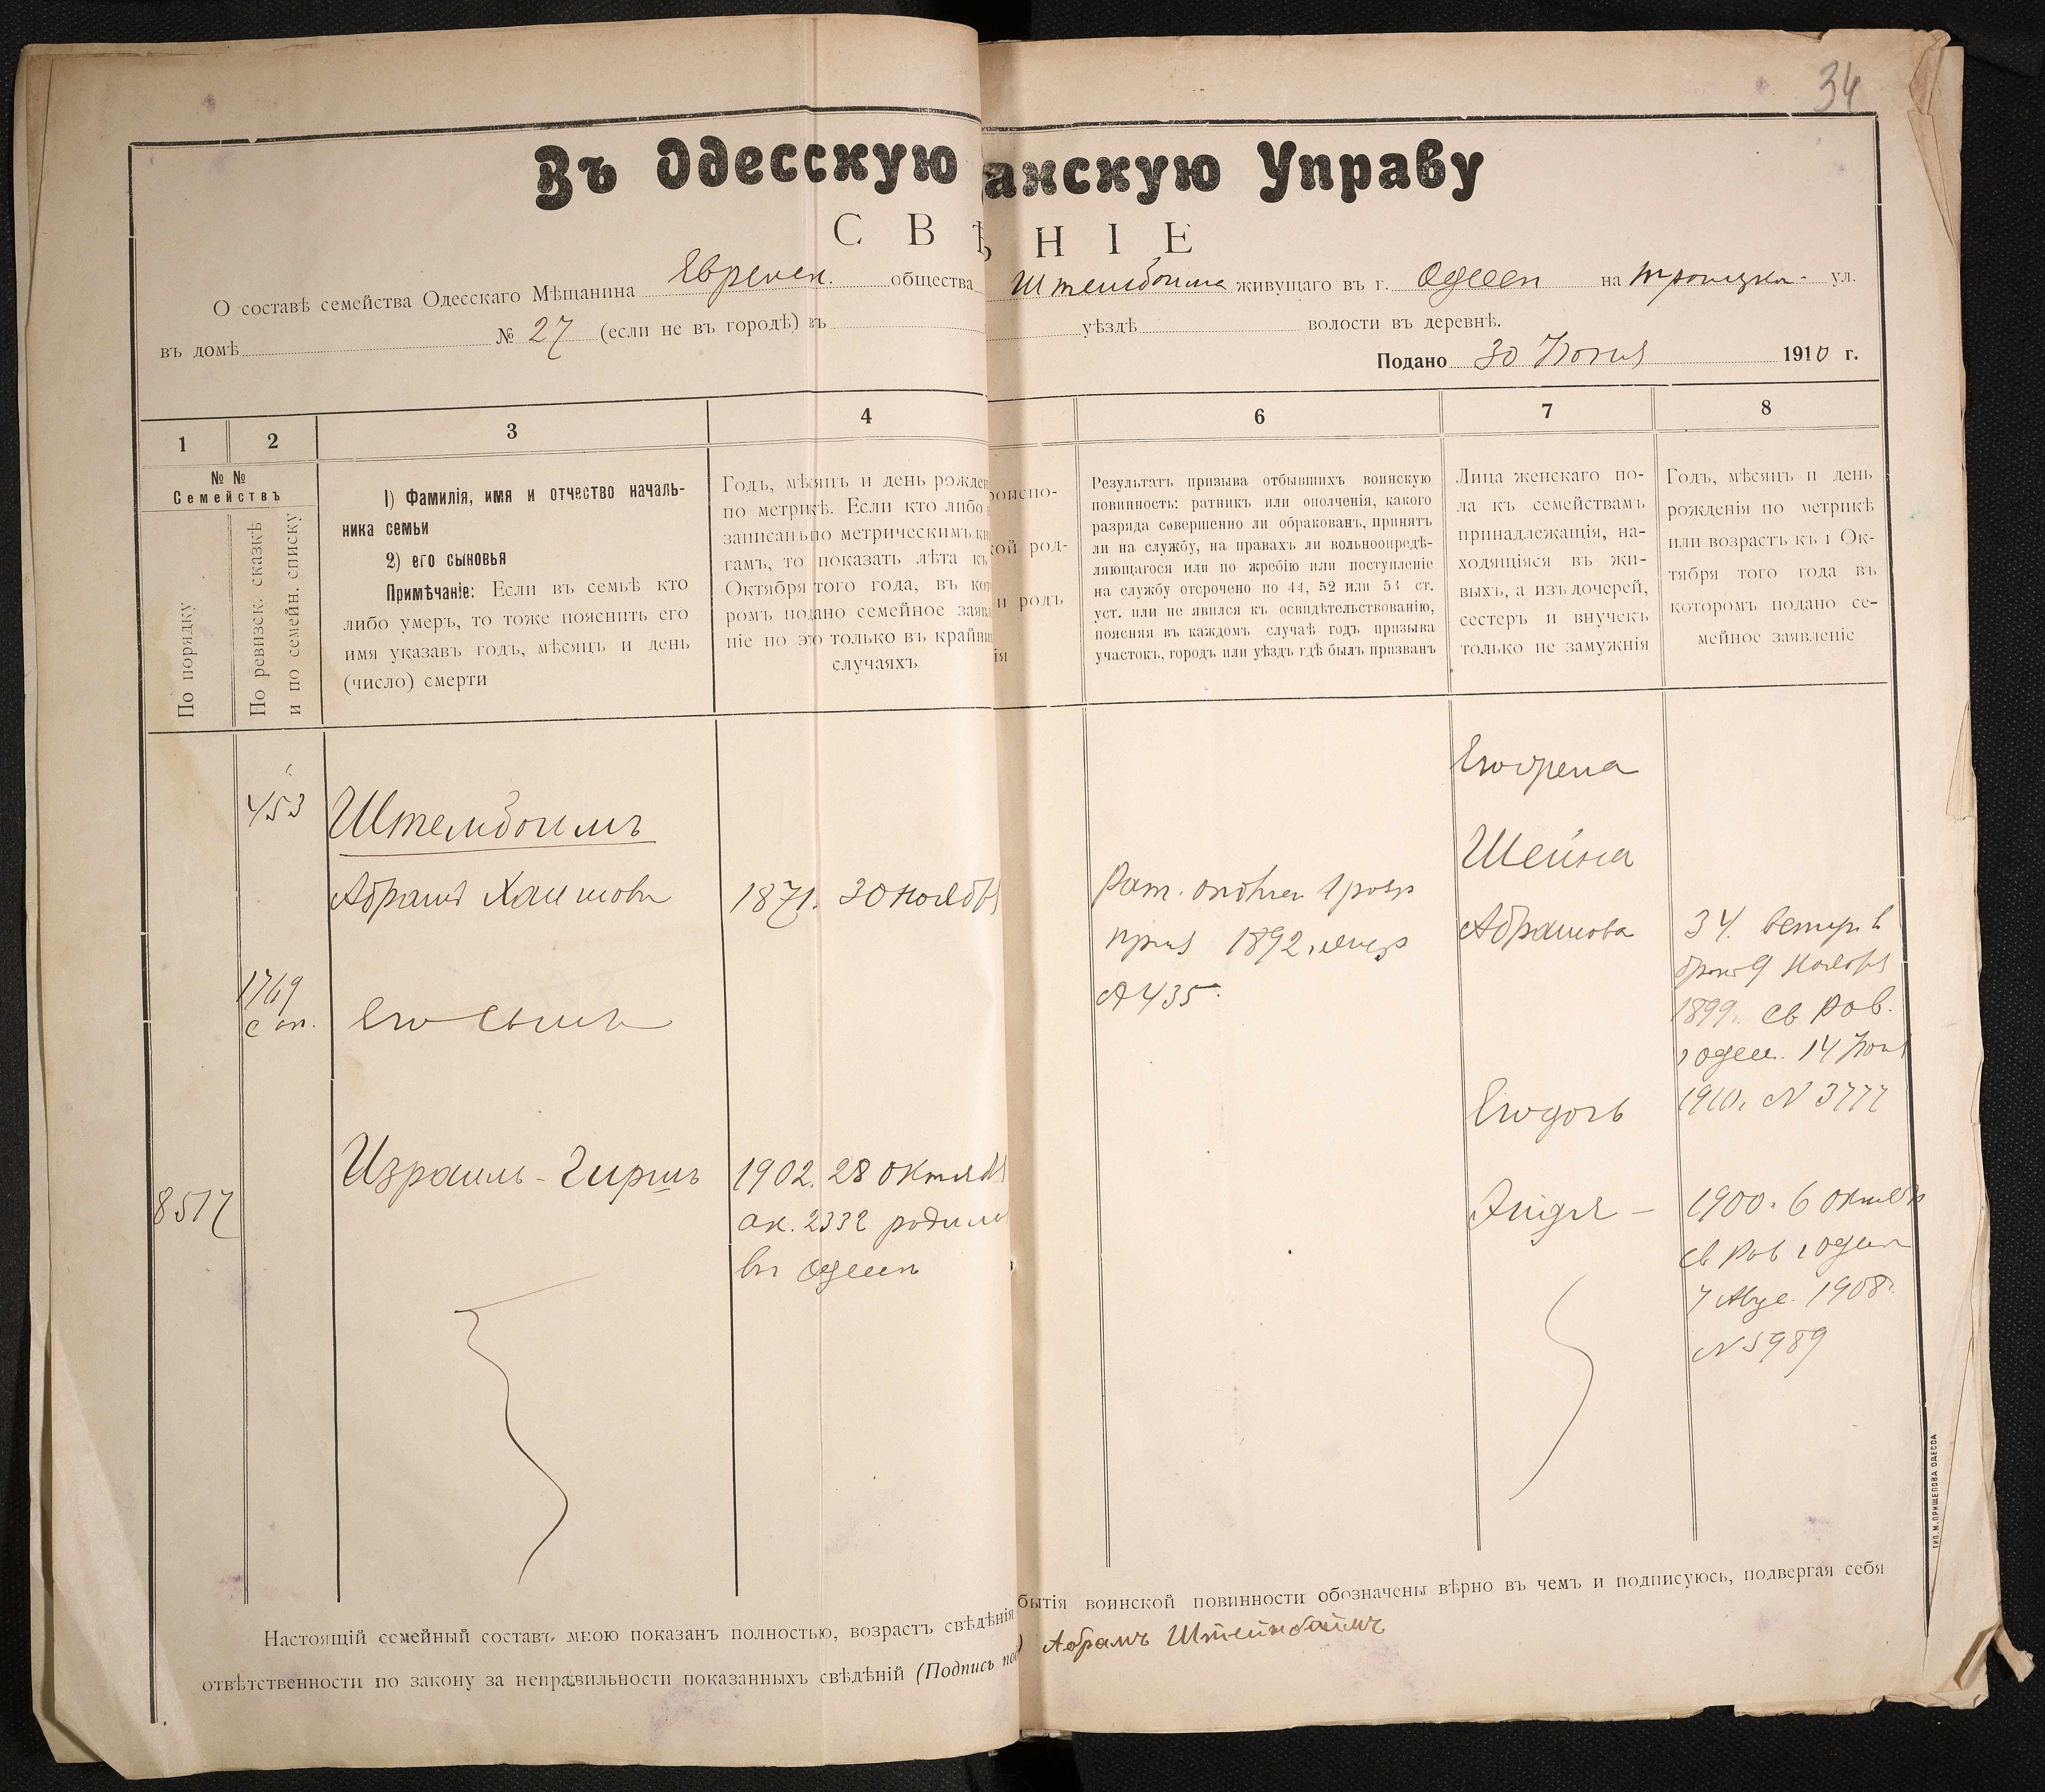 34
Въ Одесскую анскую Управу
С В Ѣ Н І Е
О составѣ семейства Одесскаго Мѣщанина Еврейск. общества Штеймбойма живущаго въ г. Одессѣ на Троицкой ул.
въ домѣ № 27 (если не въ городѣ) въ уѣздѣ волости въ деревнѣ.
Подано 30 Іюня 1910 г.
1 2 3 4 6 7 8
№ №
Семействъ
По порядку
По ревизск. сказкѣ
и по семейн. списку
1) Фамилія, имя и отчество началь-
ника семьи
2) его сыновья
Примѣчаніе: Если въ семьѣ кто
либо умеръ, то тоже пояснить его
имя указавъ годъ, мѣсяцъ и день
(число) смерти
Годъ, мѣсяцъ и день рожден
по метрикѣ. Если кто либо
записанъ по метрическимъ кн
гамъ, то показать лѣта къ
Октября того года, въ кот
ромъ подано семейное заяв
ніе но это только въ крайни
случаяхъ
роисхо-
кой род-
и родъ
ія
Результатъ призыва отбывшихъ воинскую
повинность: ратникъ или ополченія, какого
разряда совершенно ли обракованъ, принятъ
ли на службу, на правахъ ли вольноопредѣ-
ляющагося или по жребію или поступленіе
на службу отсрочено по 44, 52 или 53 ст.
уст. или не явился къ освидѣтельствованію,
поясняя въ каждомъ случаѣ годъ призыва
участокъ, городъ или уѣздъ гдѣ былъ призванъ
Лица женскаго по-
ла къ семействамъ
принадлежащія, на-
ходящіяся въ жи-
выхъ, а изъ дочерей,
сестеръ и внучекъ
только не замужнія
Годъ, мѣсяцъ и день
рожденія по метрикѣ
или возрастъ къ 1 Ок-
тября того года въ
которомъ подано се-
мейное заявленіе
453
Штеймбоимъ
Абрамъ Хаимовъ
1871. 30 ноября
Рат. ополчен 1 разр
приз 1892
№ 435.
Его жена
Шейна
Абрамова
34. вступ. в
бракъ 9 ноября
1899. св Рав.
г Одесс. 14 Іюня
1910. № 3777
1769
Его сынъ
8517
Израиль-Гиршъ
1902. 28 октяб
ак. 2332 родился
въ Одессѣ
Его дочь
Эйдля -
1900. 6 октяб
св Рав г Одессы
7 Авг. 1908 г.
№ 5989
Настоящій семейный составъ мною показанъ полностью, возрастъ свѣдѣнія бытія воинской повинности обозначены вѣрно въ чемъ и подписуюсь, подвергая себя
отвѣтственности по закону за неправильности показанныхъ свѣдѣній (Подпись под) Абрамъ Штейнбаймъ
ТИП. М. ПРИЩЕПОВА ОДЕССА